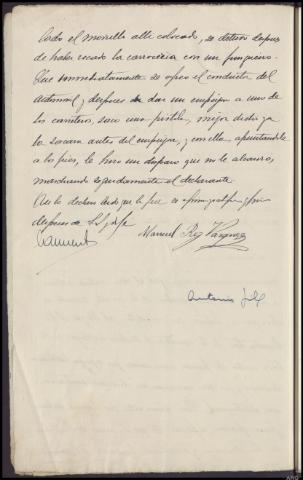 lado el morrillo allí colocado, se detuvo despues
de haber rozado la carrocería con un
Que inmediatamente se apeó el conductor del
automovil, y despues de dar un empujon a uno de
los carreteros, saco una pistola, mejor dicho ya
la sacara antes del empujon, y con ella apuntandole
a los pies, le hizo un disparo que no le alcanzó,
marchando seguidamente el declarante
Asi lo declara leido que le fue se afirma ratifica y firma
despues de S.S. doy fe
Manuel Rey Vazquez
Antonio